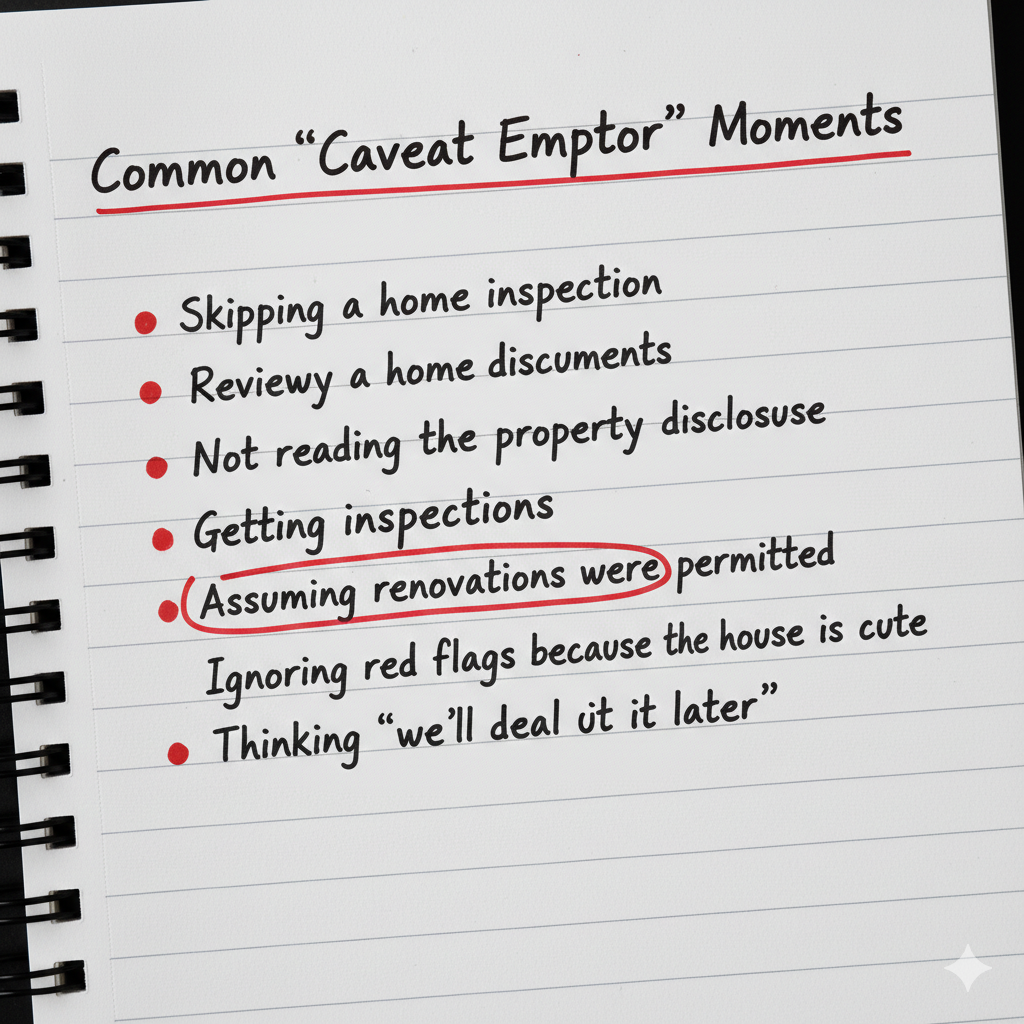 Common “Caveat Emptor” Moments
Skipping a home inspection
Reviewy a home discuments
Not reading the property disclosuse
Getting inspections
Assuming renovations were permitted
Ignoring red flags because the house is cute
Thinking “we’ll deal út it later”